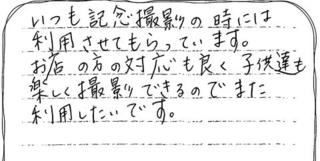 いつも記念撮影の時には
利用させてもらっています。
お店の方の対応も良く子供達も
楽しく撮影できるのでまた
利用したいです。